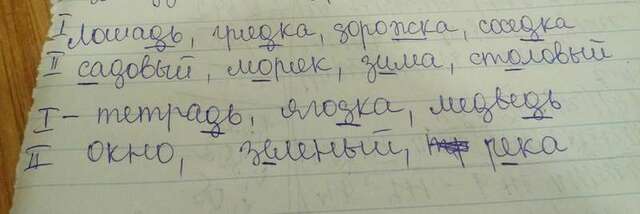 I лошадь, грядка, дорожка, соседка
II садовый, моряк, зима, столовый
I - тетрадь, ягодка, медведь
II окно, зеленый, река